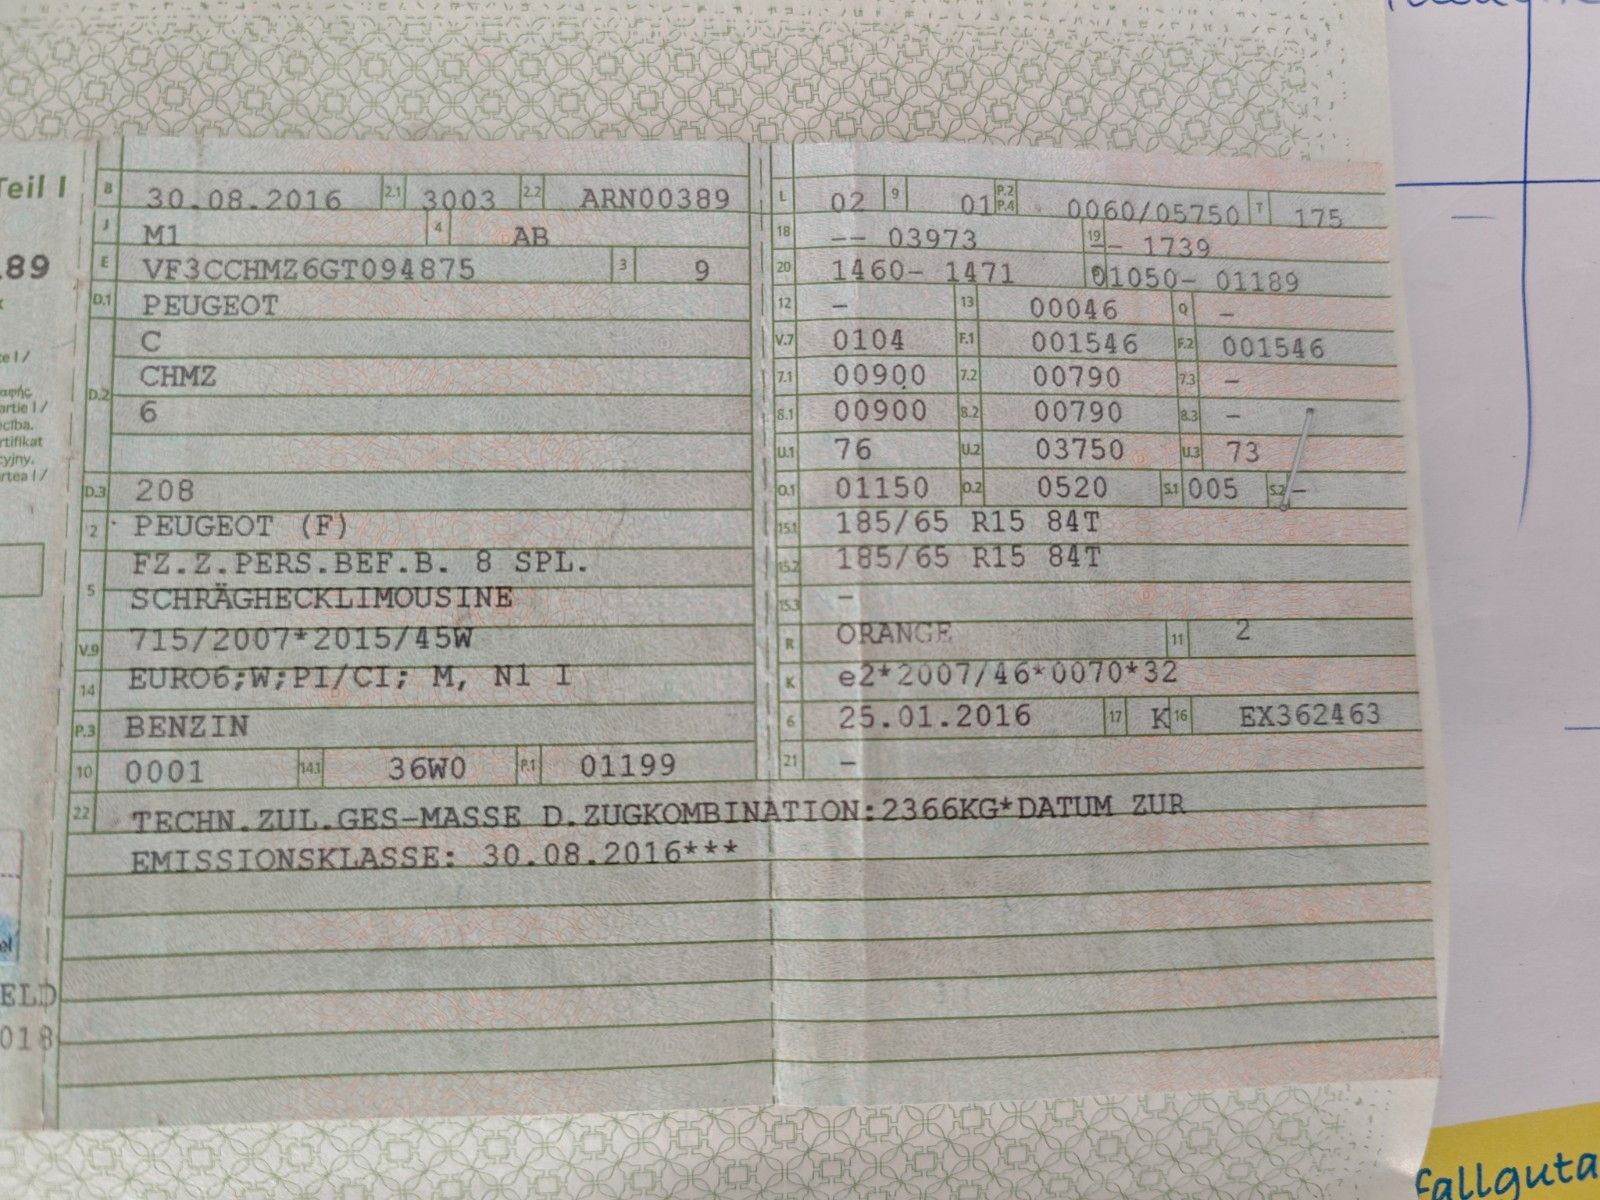 Teil I
89
te I /
αφής
artie I /
ecība.
rtifikat
cyjny.
rtea I /
el
ELD
018
B 30.08.2016 2.1 3003 2.2 ARN00389
J M1 4 AB
E VF3CCHMZ6GT094875 3 9
D.1 PEUGEOT
C
D.2 CHMZ
6
D.3 208
2 PEUGEOT (F)
FZ.Z.PERS.BEF.B. 8 SPL.
5 SCHRÄGHECKLIMOUSINE
V.9 715/2007*2015/45W
14 EURO6;W;PI/CI; M, N1 I
P.3 BENZIN
10 0001 14.1 36W0 P.1 01199
L 02 9 01 P.2 P.4 0060/05750 T 175
18 -- 03973 19 -- 1739
20 1460- 1471 G 01050- 01189
12 - 13 00046 Q -
V.7 0104 F.1 001546 F.2 001546
7.1 00900 7.2 00790 7.3 -
8.1 00900 8.2 00790 8.3 -
U.1 76 U.2 03750 U.3 73
O.1 01150 O.2 0520 S.1 005 S.2 -
15.1 185/65 R15 84T
15.2 185/65 R15 84T
15.3 -
R ORANGE 11 2
K e2*2007/46*0070*32
6 25.01.2016 17 K 16 EX362463
21 -
22 TECHN.ZUL.GES-MASSE D.ZUGKOMBINATION:2366KG*DATUM ZUR
EMISSIONSKLASSE: 30.08.2016***
fallguta